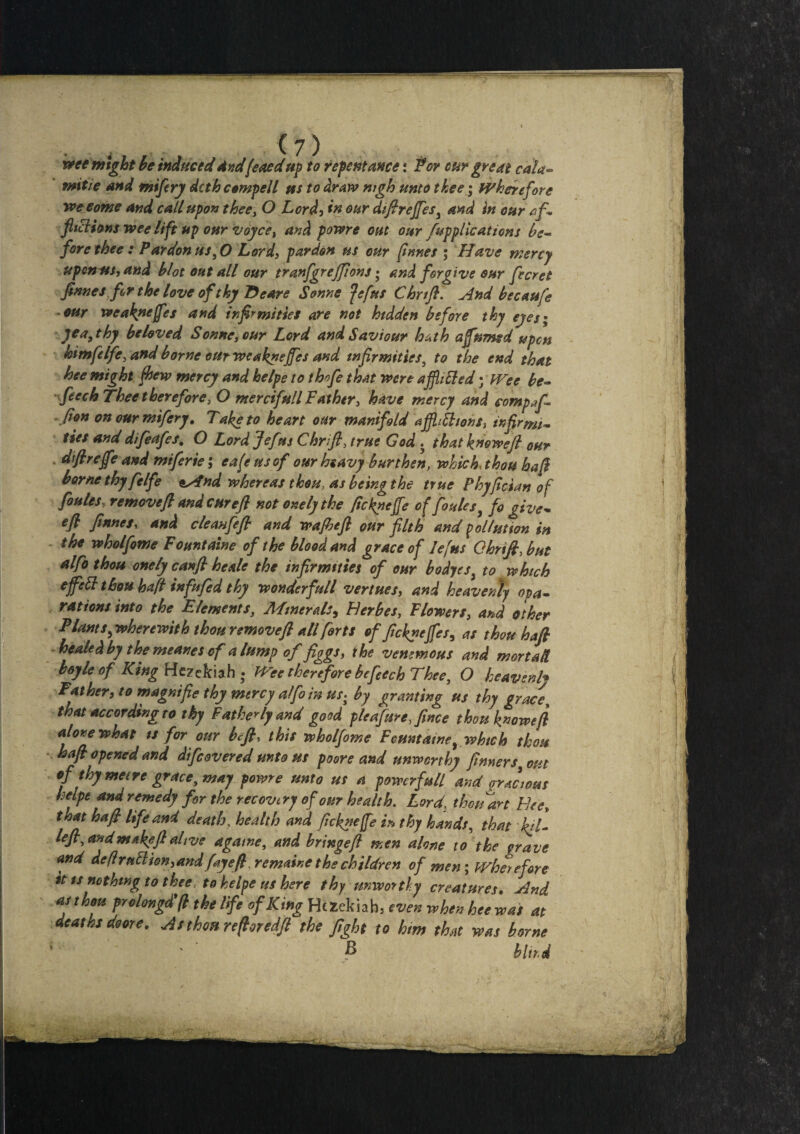 (7)
wee might be induced and ſeaced up to repentance: For our great cala-
mitie and miſery doth compell us to draw nigh unto thee; Wherefore
we come and call upon thee, O Lord, in our diſtreſſes, and in our af-
flictions wee lift up our voyce, and powre out our ſupplications be-
fore thee: Pardon us, O Lord, pardon us our ſinnes; Have mercy
upon us, and blot out all our tranſgreſſions; and forgive our ſecret
ſinnes for the love of thy Deare Sonne Jeſus Chriſt. And becauſe
our weakneſſes and infirmities are not hidden before thy eyes;
yea, thy beloved Sonne, our Lord and Saviour hath aſſumed upon
himſelfe, and borne our weakneſſes and infirmities, to the end that
hee might ſhew mercy and helpe to thoſe that were afflicted; Wee be-
ſeech Thee therefore, O mercifull Father, have mercy and compaſ-
ſion on our miſery. Take to heart our manifold afflictions, infirmi-
ties and diſeaſes. O Lord Jeſus Chriſt, true God; that knoweſt our
diſtreſſe and miſerie; eaſe us of our heavy burthen, which thou haſt
borne thy ſelfe And whereas thou, as being the true Phyſician of
ſoules, removeſt and cureſt not onely the ſickneſſe of ſoules, ſo give-
eſt ſinnes, and cleanſeſt and waſheſt our filth and pollution in
the wholſome Fountaine of the blood and grace of Ieſus Chriſt, but
alſo thou onely canſt heale the infirmities of our bodyes, to which
effect thou haſt infuſed thy wonderfull vertues, and heavenly opa-
rations into the Elements, Minerals, Herbes, Flowers, and other
Plants, wherewith thou removeſt all ſorts of ſickneſſes, as thou haſt
healed by the meanes of a lump of figgs, the venemous and mortall
boyle of King Hezekiah; Wee therefore beſeech Thee, O heavenly
Father, to magnifie thy mercy alſo in us; by granting us thy grace,
that according to thy Fatherly and good pleaſure, ſince thou knoweſt
alone what is for our beſt, this wholſome Fountaine, which thou
haſt opened and diſcovered unto us poore and unworthy ſinners, out
of thy meere grace, may powre unto us a powerfull and gracious
helpe and remedy for the recovery of our health. Lord, thou art Hee,
that haſt life and death, health and ſickneſſe in thy hands, that kil-
leſt, and makeſt alive againe, and bringeſt men alone to the grave
and deſtruction, and ſayeſt, remaine the children of men; Wherefore
it is nothing to thee, to helpe us here thy unworthy creatures. And
as thou prolongd'ſt the life of King Hezekiah, even when hee was at
deaths doore. As thou reſtoredſt the ſight to him that was borne
B blind